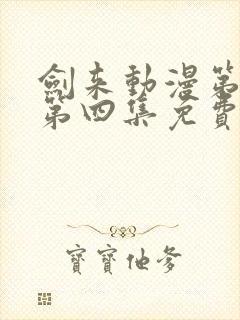 劍来動漫第
第四集免費
寶寶他爹